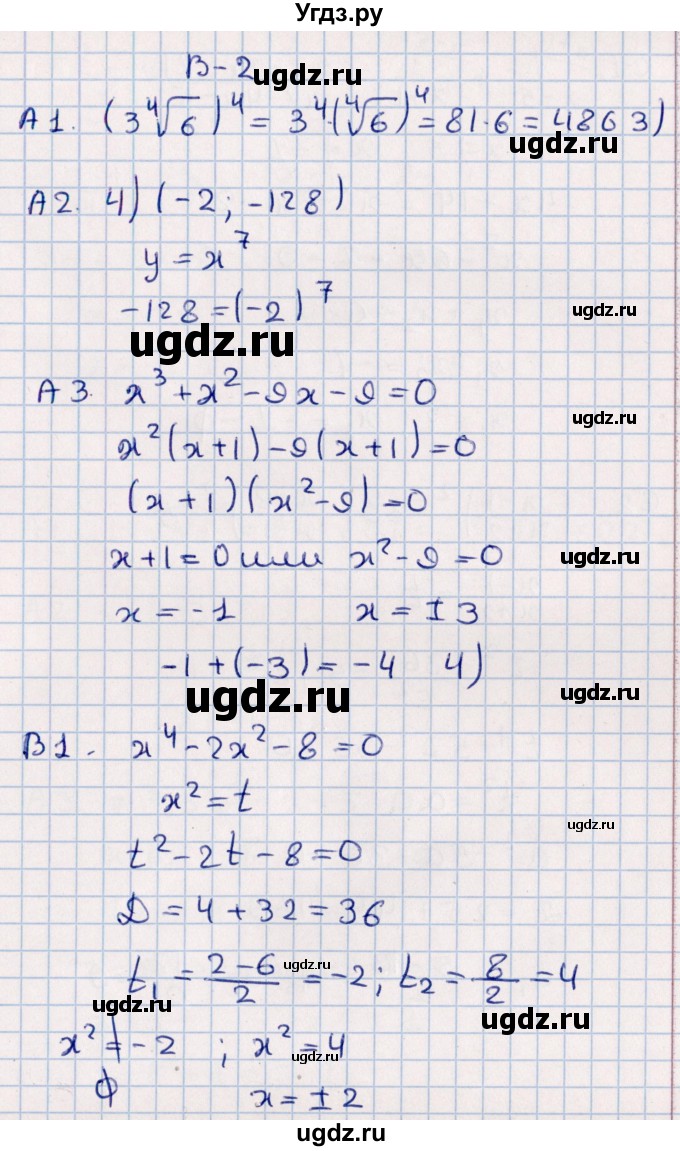 Угдз.ру
В-2
ugdz.ru
А1. (3⁴√6)⁴ = 3⁴·(⁴√6)⁴ = 81·6 = 486 3)
ugdz.ru
А2. 4) (-2; -128)
y = x⁷
-128 = (-2)⁷
ugdz.ru
ugdz.ru
А3. x³ + x² - 9x - 9 = 0
ugdz.ru
x²(x+1) - 9(x+1) = 0
(x+1)(x² - 9) = 0
x+1 = 0 или x² - 9 = 0
ugdz.ru
x = -1 x = ±3
-1 + (-3) = -4 4)
ugdz.ru
ugdz.ru
В1. x⁴ - 2x² - 8 = 0
x² = t
ugdz.ru
t² - 2t - 8 = 0
D = 4 + 32 = 36
t₁ = (2-6)/2 = -2; t₂ = 8/2 = 4
ugdz.ru
ugdz.ru
ugdz.ru
x² ≠ -2 ; x² = 4
ugdz.ru
ϕ x = ±2
ugdz.ru